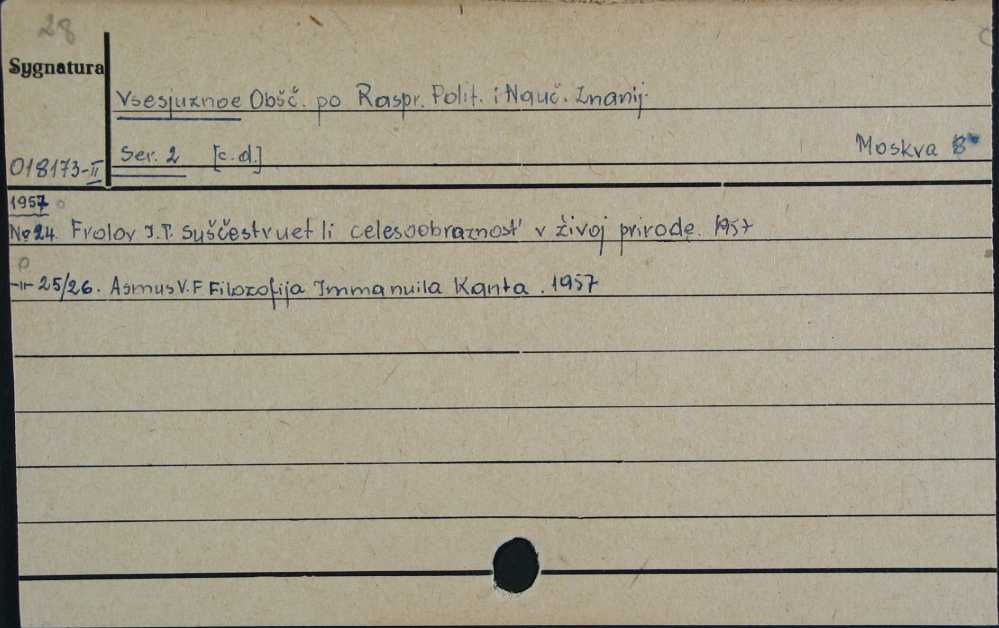 28
Sygnatura
Vsesjuznoe Obšč. po Raspr. Polit. i Nauč. Znanij.
018173-II
Ser. 2 [c.d.]
Moskva 8°
1957
No 24. Frolov I.T. Suščestvuet li celesoobraznost' v živoj prirode. 1957
-"- 25/26. Asmus V.F Filozofija Immanuila Kanta. 1957